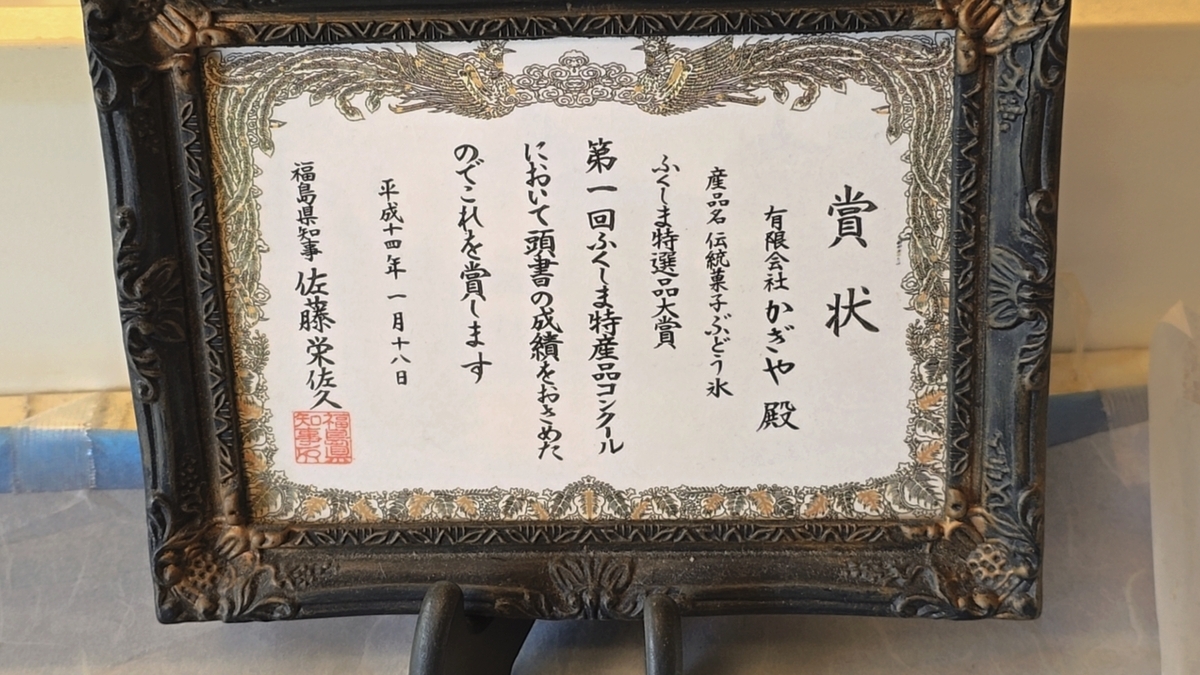 賞状
有限会社 かぎや 殿
産品名 伝統菓子ぶどう氷
ふくしま特選品大賞
第一回ふくしま特産品コンクール
において頭書の成績をおさめた
のでこれを賞します
平成十四年 一月十八日
福島県知事 佐藤栄佐久
福島県
知事印